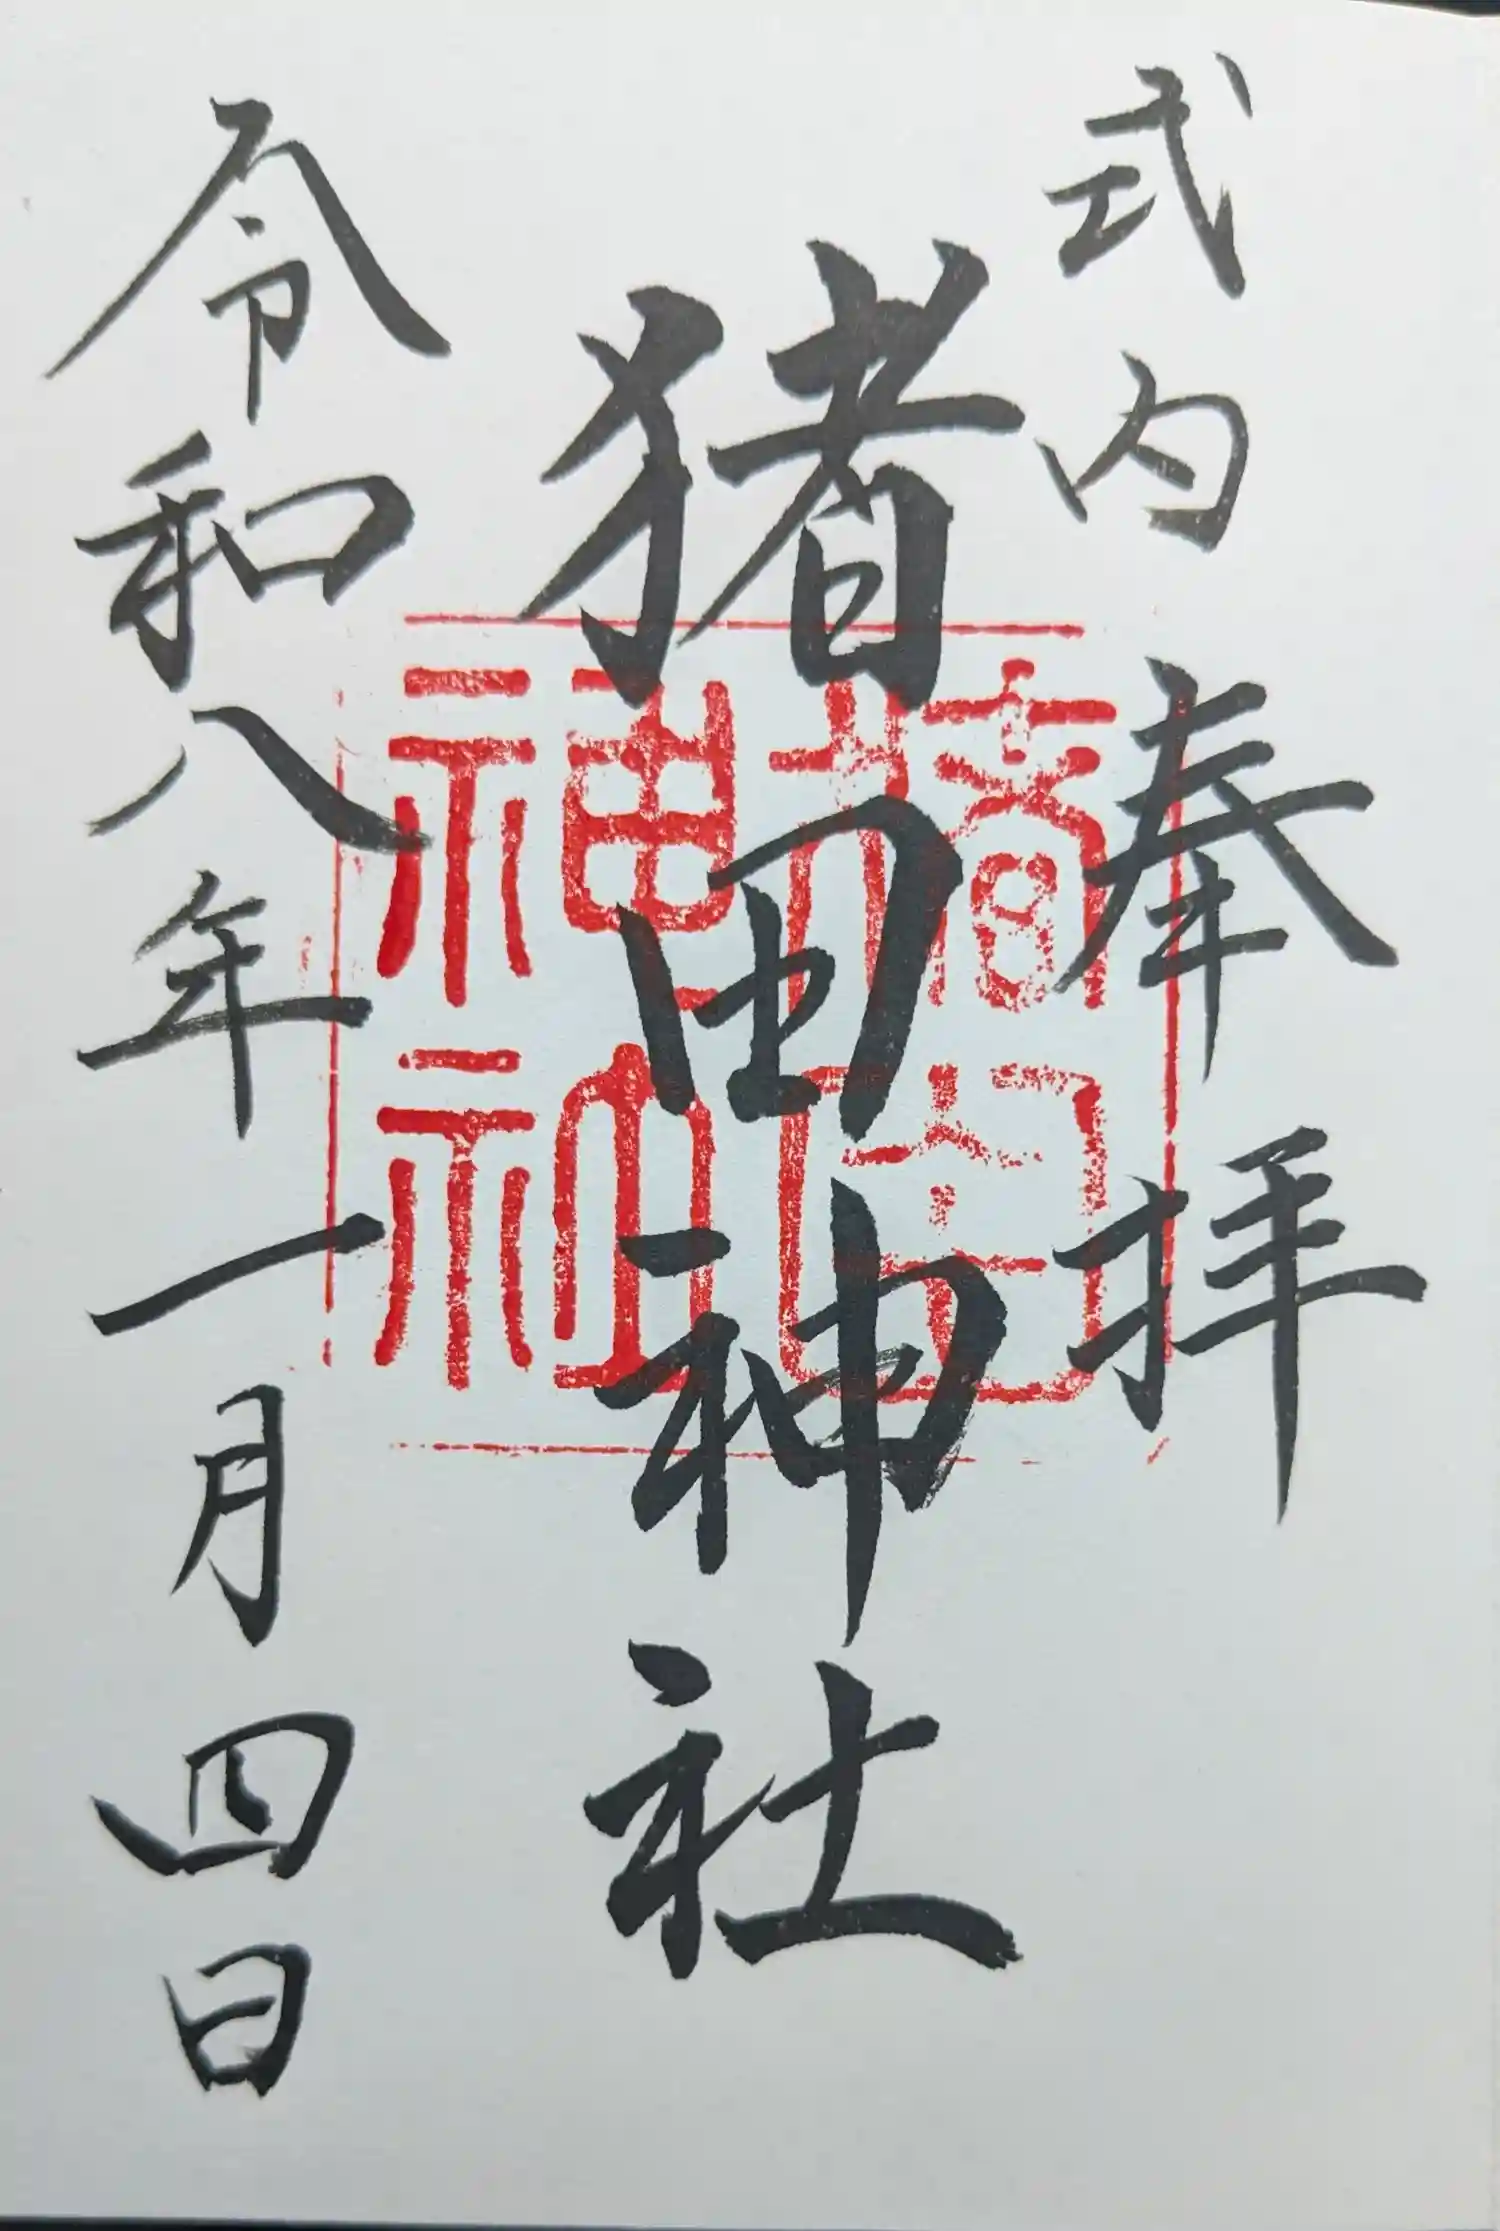 式内 奉拝
猪田神社
令和八年一月四日
神社